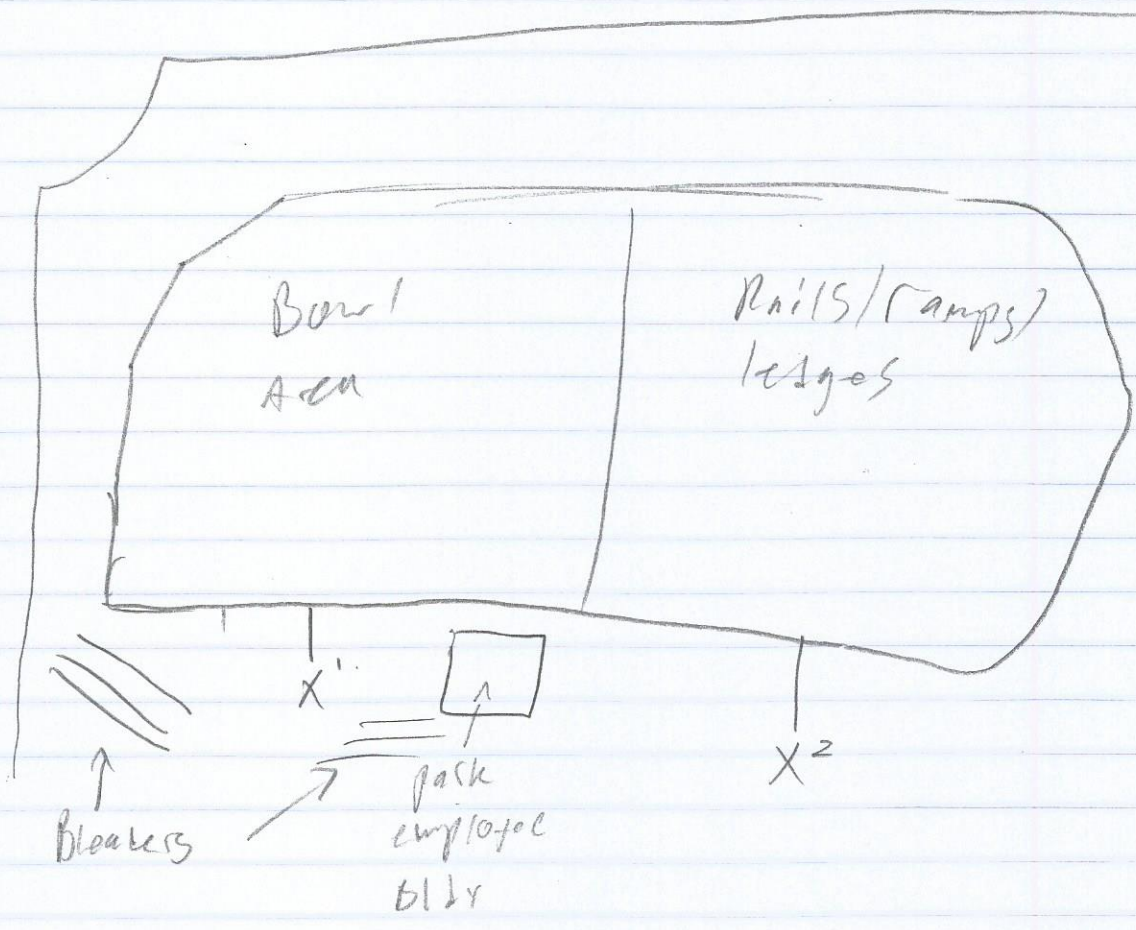 Bowl
Area
Rails/ramps/
ledges
X1
X2
Bleakers
park
employee
Bldr